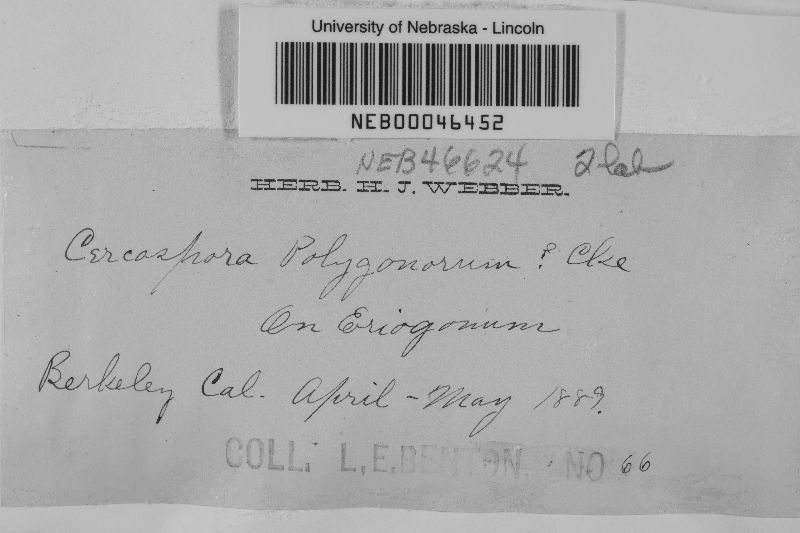 University of Nebraska - Lincoln
NEB00046452
NEB46624 2 lab
HERB. H. J. WEBBER.
Cercospora Polygonorum ? Cke
On Eriogonum
Berkeley Cal. April - May 1889.
COLL. L. E. BENTON. NO 66